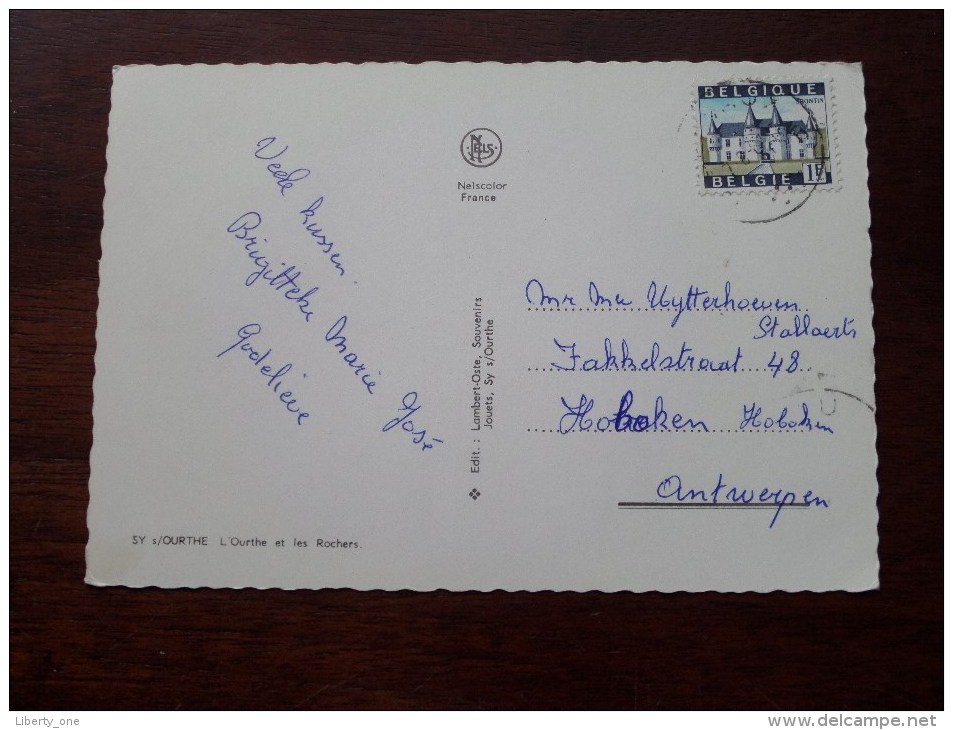 BELGIQUE
SPONTIN
1F
BELGIE
NELS
Nelscolor
France
Veele kussen.
Brigitteke Marie José
Godelieve
Edit.: Lambert-Oste, Souvenirs
Jouets, Sy s/Ourthe
Mr Mw Uytterhoeven
Stallaerts
Fakkelstraat 48
Hoboken Hoboken
Antwerpen
SY s/OURTHE L'Ourthe et les Rochers.
Liberty_one
www.delcampe.net